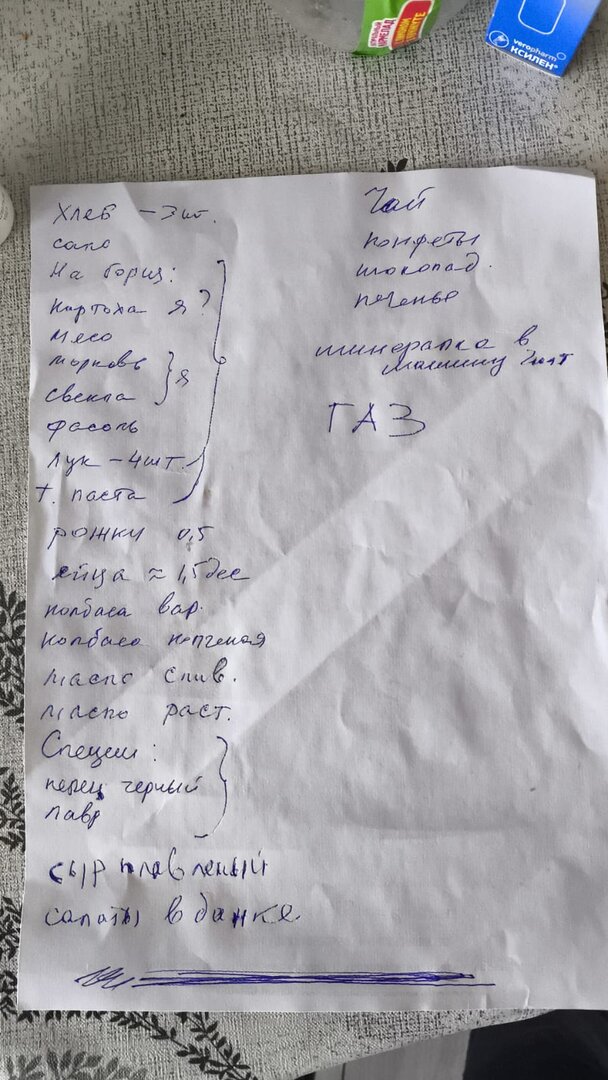 veropharm
КСИЛЕН®
Хлеб – 3 шт.
сало
На борщ:
картоха я?
мясо
морковь
свекла } я
фасоль
лук – 4 шт.
т. паста
рожки 0,5
яйца ≈ 1,5 дес
колбаса вар.
колбаса копченая
масло слив.
масло раст.
Специи:
перец черный
лавр
сыр плавленый
салаты в банке.
Чай
конфеты
шоколад.
печенье
минералка в
машину 2 шт
ГАЗ